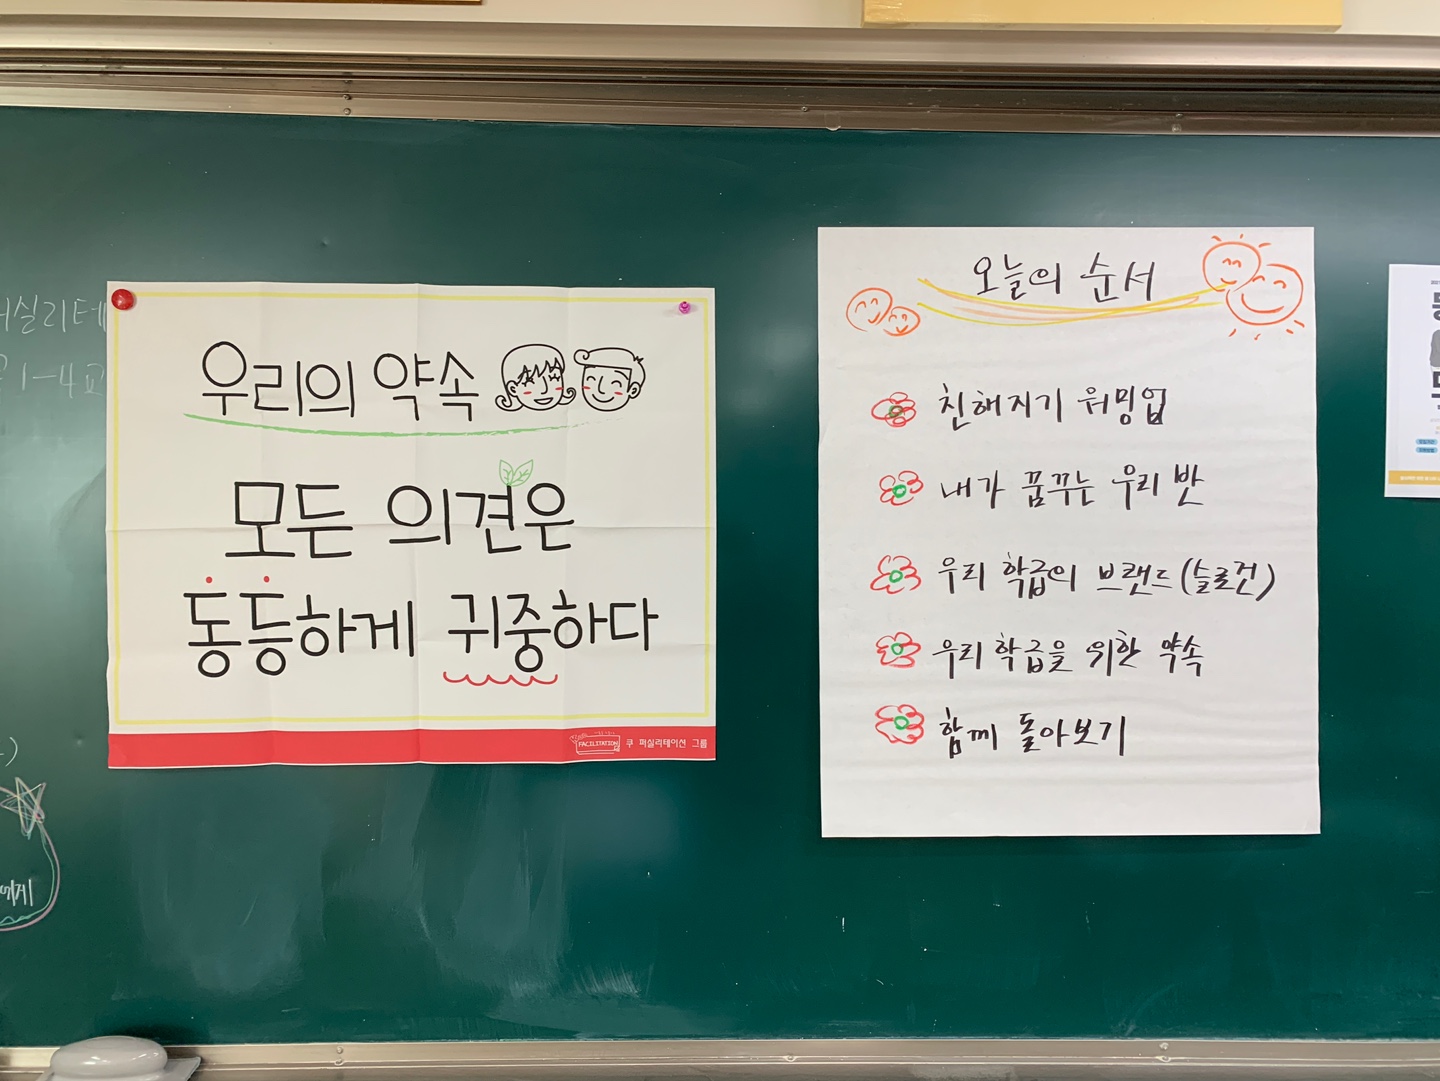 우리의 약속
모든 의견은
동등하게 귀중하다
FACILITATION
쿠 퍼실리테이션 그룹
오늘의 순서
친해지기 워밍업
내가 꿈꾸는 우리 반
우리 학급의 브랜드(슬로건)
우리 학급을 위한 약속
함께 돌아보기
퍼실리테
1-4교
에게